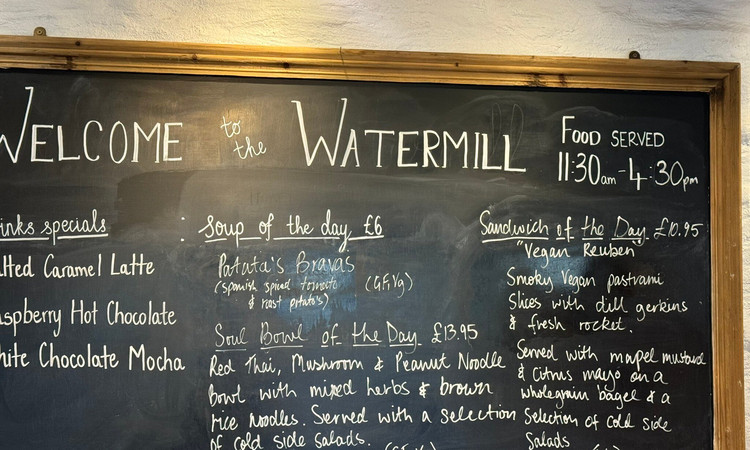 WELCOME to the WATERMILL
FOOD SERVED
11:30am-4:30pm
inks specials :
lted Caramel Latte
aspberry Hot Chocolate
hite Chocolate Mocha
Soup of the day £6
Patata's Bravas
(spanish spiced tomato
& roast potato's) (GF,Vg)
Soul Bowl of the Day £13.95
Red Thai, Mushroom & Peanut Noodle
Bowl with mixed herbs & brown
rice Noodles. Served with a selection
of cold side salads.
Sandwich of the Day £10.95
"Vegan Reuben"
Smoky Vegan pastrami
slices with dill gerkins
& fresh rocket.
Served with mapel mustard
& Citrus mayo on a
wholegrain bagel & a
Selection of cold side
Salads